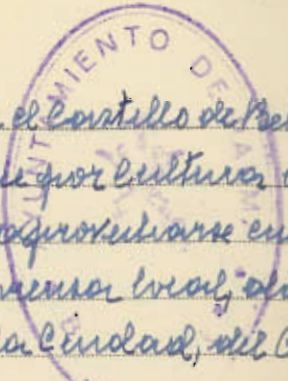 AYUNTAMIENTO DE
el Castillo de Bel
por Cultura
aprovecharse en
prensa local, al
la Ciudad, del C